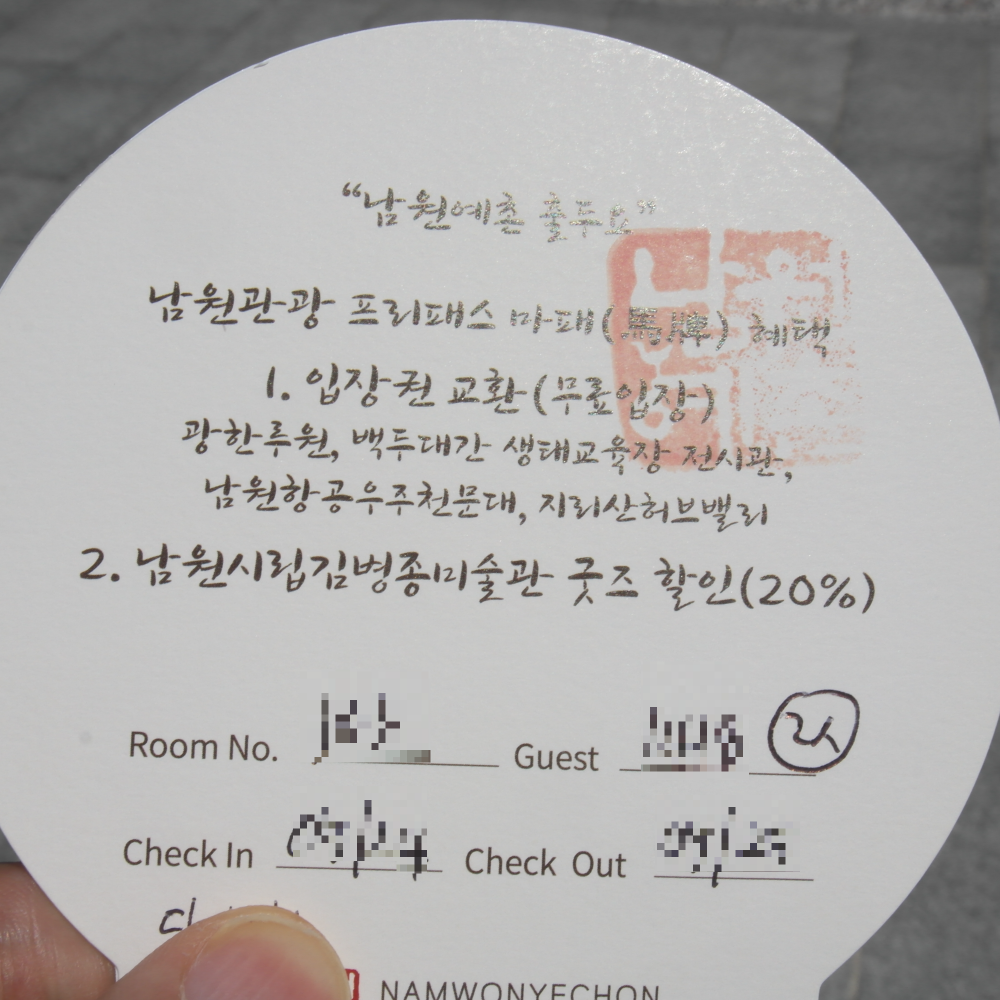 “남원예촌 출두요”
남원관광 프리패스 마패(馬牌) 혜택
1. 입장권 교환(무료입장)
광한루원, 백두대간 생태교육장 전시관,
남원항공우주천문대, 지리산허브밸리
2. 남원시립김병종미술관 굿즈 할인(20%)
Room No. Guest
Check In Check Out
NAMWONYECHON